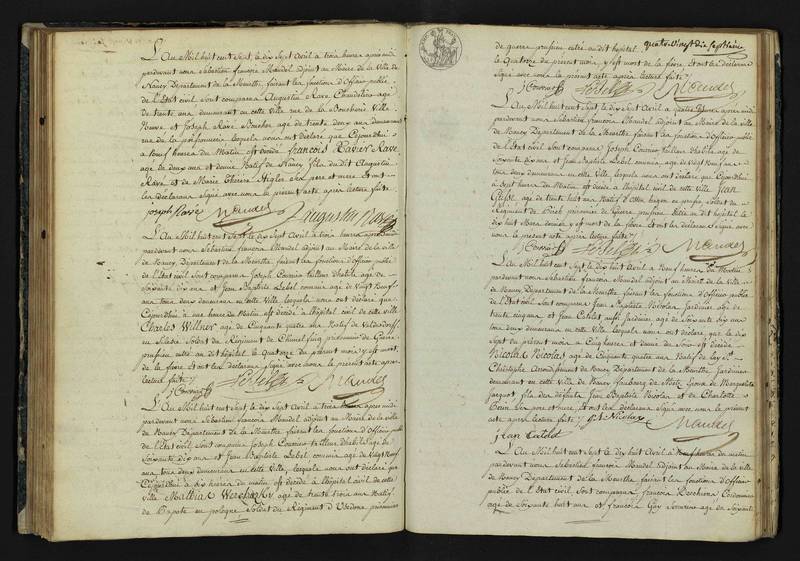 L'An Mil huit cent Sept, le dix Sept Avril à trois heures après midi
pardevant nous Sébastien françois Mandel adjoint au Maire de la Ville de
Nancy, Département de la Meurthe, faisant les fonctions d'Officier public
de l'Etat civil, Sont comparus Augustin Ravé Chandelier agé
de trente ans demeurant en cette Ville rue de la Boucherie Ville
Neuve et Joseph Ravé Boucher agé de trente deux ans demeurant
rue de la poissonnerie lesquels nous ont déclaré que Cejourd'hui
à neuf heures du Matin est décédé françois Xavier Ravé
agé de deux ans et demie Natif de Nancy fils dudit Augustin
Ravé et de Marie Thérèse Higler Ses pere et mere. Et ont
les déclarans Signé avec nous le présent acte après lecture faite
joseph Ravé Mandel augustin Ravé
L'An Mil huit cent Sept, le dix Sept Avril à trois heures après midi
pardevant nous Sébastien françois Mandel adjoint au Maire de la ville
de Nancy, Département de la Meurthe, faisant les fonctions d'Officier public
de l'Etat civil Sont comparus Joseph Couvrion tailleur d'habits agé de
Soixante dix ans et Jean Baptiste Lebel commis agé de Vingt Neuf
ans tous deux demeurans en cette Ville, lesquels nous ont déclaré que
Cejourd'hui à une heure du Matin est décédé à l'hôpital civil de cette ville
Charles Willner agé de Cinquante quatre ans Natif de
en Silésie Soldat du Régiment de prisonnier de Guerre
prussien entré audit hôpital le Quatorze du présent mois, y est mort
de la fièvre. Et ont les déclarans Signé avec nous le présent acte après
lecture faite
Couvrion Lebel Mandel
L'An Mil huit cent Sept, le dix Sept Avril à trois heures après midi
pardevant nous Sébastien françois Mandel adjoint au Maire de la ville
de Nancy Département de la Meurthe faisant les fonctions d'Officier public
de l'Etat civil, Sont comparus Joseph Couvrion tailleur d'habits agé de
Soixante dix ans et Jean Baptiste Lebel commis agé de Vingt Neuf
ans, tous deux demeurans en cette Ville, lesquels nous ont déclaré que
Cejourd'hui à dix heures du matin est décédé à l'hôpital civil de cette
Ville Mathias agé de trente trois ans Natif
de en pologne, Soldat du Régiment d'Usedom prisonnier
quatre Vingt dix Septième
de guerre prussien, entré audit hôpital
le Quatorze du présent mois, y est mort de la fièvre. Et ont les déclarans
Signé avec nous le présent acte après lecture faite
Couvrion Lebel Mandel
L'An Mil huit cent Sept, le dix huit Avril à heures après midi
pardevant nous Sébastien françois Mandel adjoint au Maire de la ville
de Nancy Département de la Meurthe faisant les fonctions d'Officier public
de l'Etat civil Sont comparus Joseph Couvrion tailleur d'habits agé de
Soixante dix ans et Jean Baptiste Lebel commis, agé de Vingt Neuf ans
tous deux demeurans en cette Ville lesquels nous ont déclaré que Cejourd'hui
à Sept heures du Matin est décédé à l'hôpital civil de cette ville Jean
agé de trente huit ans Natif en prusse Soldat du
Régiment de prisonnier de Guerre prussien entré audit hôpital le
dix huit Mars dernier, y est mort de la fièvre. Et ont les déclarans Signé avec
nous le présent acte après lecture faite
Couvrion Lebel Mandel
L'An Mil huit cent Sept, le dix huit Avril à Neuf heures du Matin
pardevant nous Sébastien françois Mandel adjoint au Maire de la Ville
de Nancy, Département de la Meurthe, faisant les fonctions d'Officier public
de l'Etat civil Sont comparus Jean Baptiste Nicolas Jardinier agé de
trente cinq ans et Jean Catelot aussi Jardinier agé de Soixante dix ans
tous deux demeurans en cette Ville lesquels nous ont déclaré que le dix
Sept du présent mois à Cinq heures et demie du Soir est décédé
Nicolas Nicolas agé de Cinquante quatre ans Natif de Lay St.
Christophe Arrondissement de Nancy Département de la Meurthe Jardinier
demeurant en cette Ville de Nancy faubourg de Metz époux de Marguerite
Jacquot, fils des défunts Jean Baptiste Nicolas et de Charlotte
Ses pere et mere. Et ont les déclarans Signé avec nous le présent
acte après lecture faite J. B. Nicolas Mandel
jean Catelot
L'An Mil huit cent Sept, le dix huit Avril à Neuf heures du matin
pardevant nous Sébastien françois Mandel adjoint au Maire de la ville
de Nancy Département de la Meurthe faisant les fonctions d'Officier
public de l'Etat civil Sont comparus françois Cordonnier
agé de Soixante huit ans et françois Gay Serrurier agé de Soixante